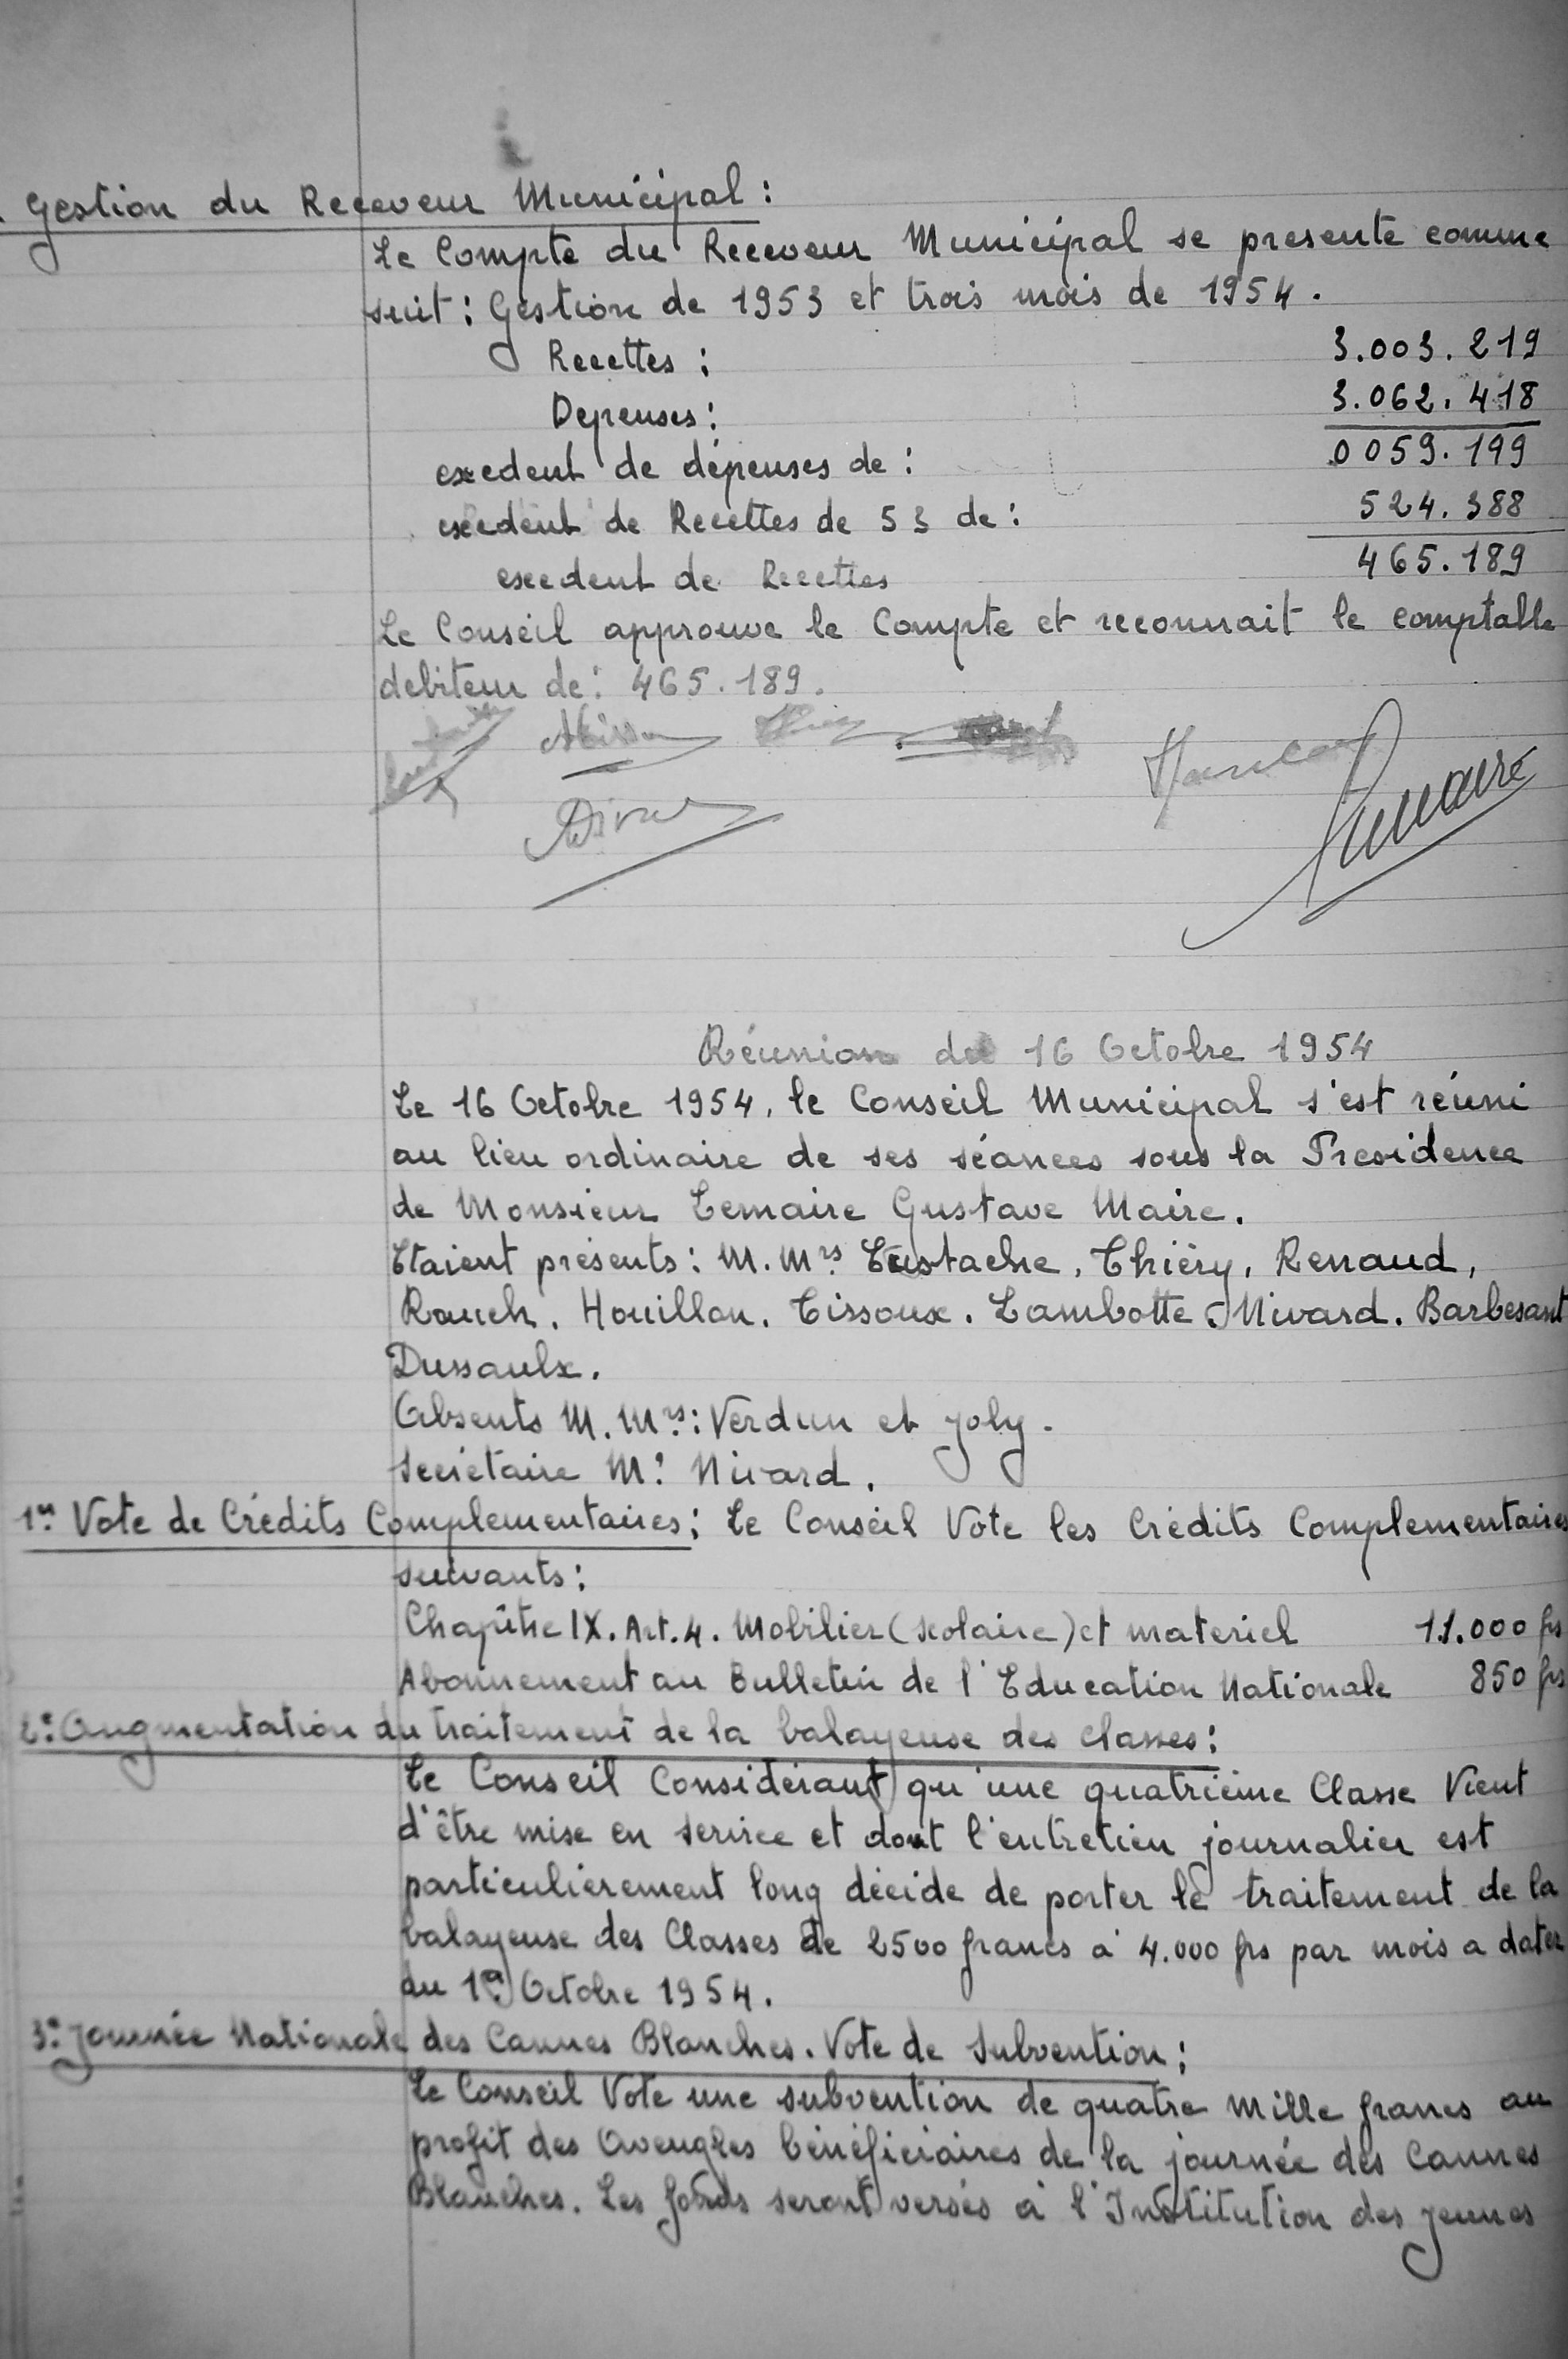 Gestion du Receveur Municipal :
Le Compte du Receveur Municipal se presente comme
suit : Gestion de 1953 et trois mois de 1954.
Recettes : 3.003.219
Depenses : 3.062.418
exedent de dépenses de : 0059.199
excedent de Recettes de 53 de : 524.388
excedent de Recettes 465.189
Le Conseil approuve le Compte et reconnait le comptable
debiteur de : 465.189.
Réunion du 16 Octobre 1954
Le 16 Octobre 1954, le Conseil Municipal s'est réuni
au lieu ordinaire de ses séances sous la Presidence
de Monsieur Lemaire Gustave Maire.
Etaient présents : M. Mrs. Eustache, Thiéry, Renaud,
Rauch, Houillon, Tissoux. Lambotte, Nivard. Barbesant
Dussaulx.
Absents M. Mrs : Verdun et Joly.
Secrétaire Mr Nivard.
1er Vote de Crédits Complementaires : Le Conseil Vote les Crédits Complementaires
suivants :
Chapître IX. Art. 4. Mobilier (scolaire) et materiel 11.000 frs
Abonnement au Bulletin de l'Education Nationale 850 frs
2e: Augmentation du traitement de la balayeuse des classes :
Le Conseil Considérant qu'une quatrième Classe Vient
d'être mise en service et dont l'entretien journalier est
particulièrement long décide de porter le traitement de la
balayeuse des Classes de 2500 francs à 4.000 frs par mois a dater
du 1er Octobre 1954.
3e: Journée Nationale des Cannes Blanches. Vote de Subvention :
Le Conseil Vote une subvention de quatre mille francs au
profit des Aveugles bénéficiaires de la journée des Cannes
Blanches. Les fonds seront versés à l'Institution des jeunes